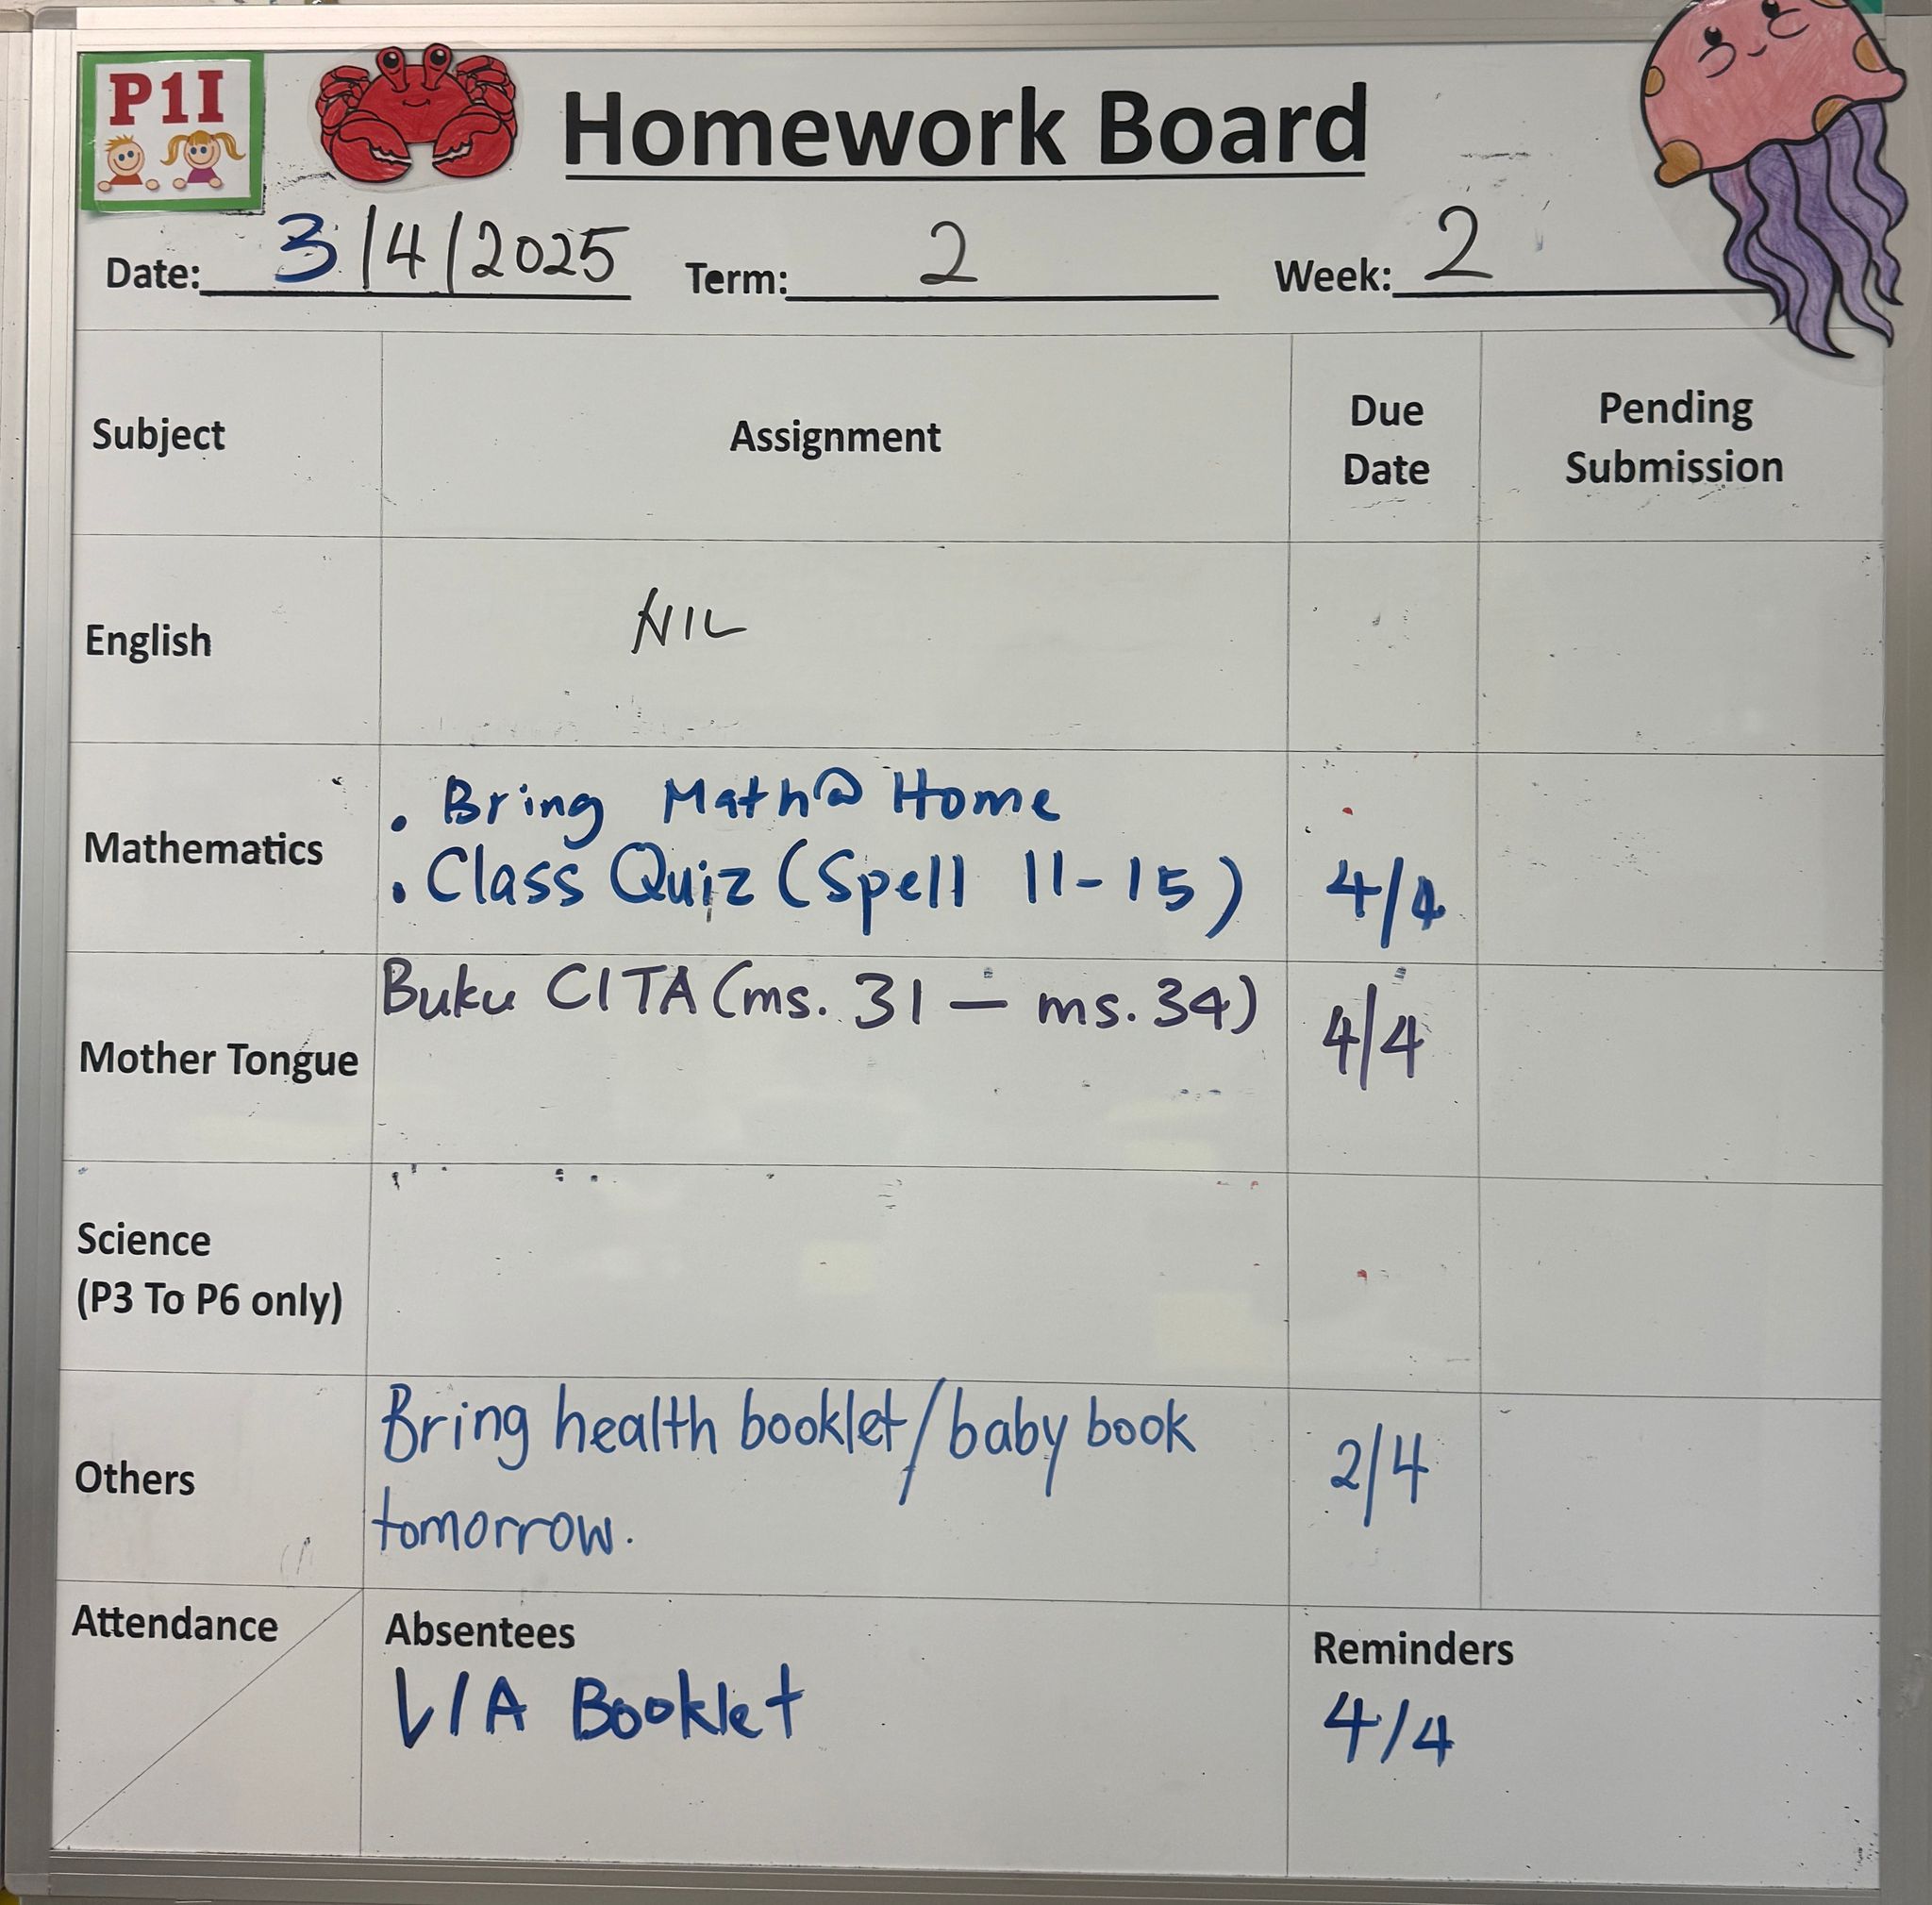 P1I
Homework Board
Date: 3/4/2025 Term: 2 Week: 2
Subject
Assignment
Due
Date
Pending
Submission
English
NIL
Mathematics
. Bring Math@ Home
. Class Quiz (Spell 11-15)
4/4
Mother Tongue
Buku CITA (ms. 31 – ms. 34)
4/4
Science
(P3 To P6 only)
Others
Bring health booklet/baby book
tomorrow.
2/4
Attendance
Absentees
L/A Booklet
Reminders
4/4